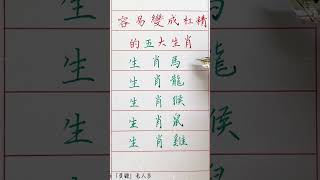 容易變成杠精
的五大生肖
生肖馬
生肖龍
生肖猴
生肖鼠
生肖雞